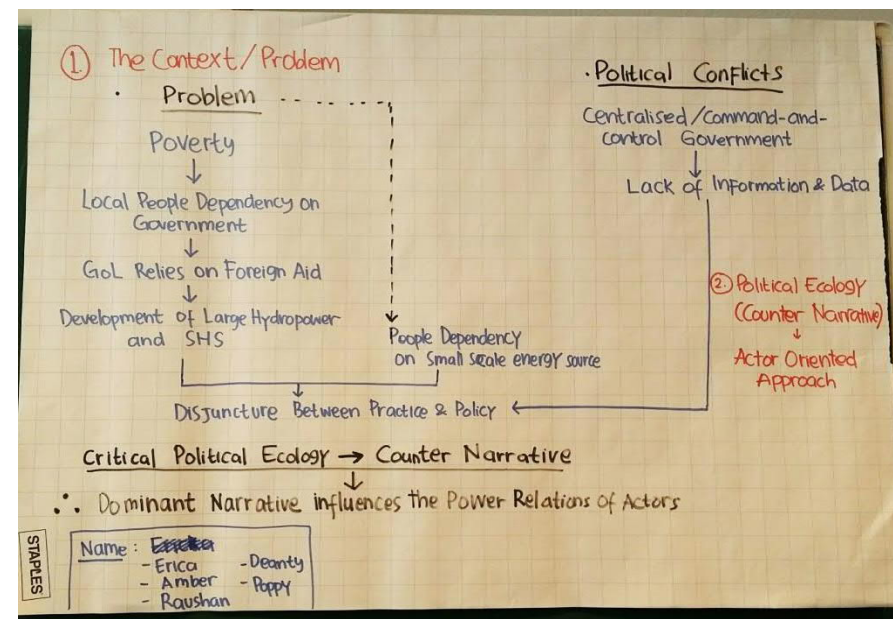 ① The Context/Problem
· Problem
Poverty
Local People Dependency on
Government
GoL Relies on Foreign Aid
Development of Large Hydropower
and SHS
People Dependency
on Small scale energy source
Disjuncture Between Practice & Policy
· Political Conflicts
Centralised/Command-and-
control Government
Lack of Information & Data
② Political Ecology
(Counter Narrative)
Actor Oriented
Approach
Critical Political Ecology → Counter Narrative
∴ Dominant Narrative influences the Power Relations of Actors
Name:
- Erica
- Amber
- Raushan
- Deanty
- Poppy
STAPLES